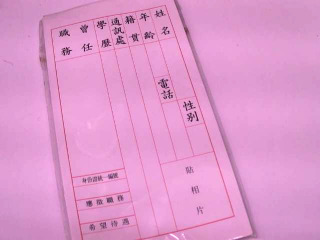 姓名
年齡
籍貫
通訊處
學歷
曾任
職務
性別
電話
身份證統一編號
應徵職務
希望待遇
貼相片